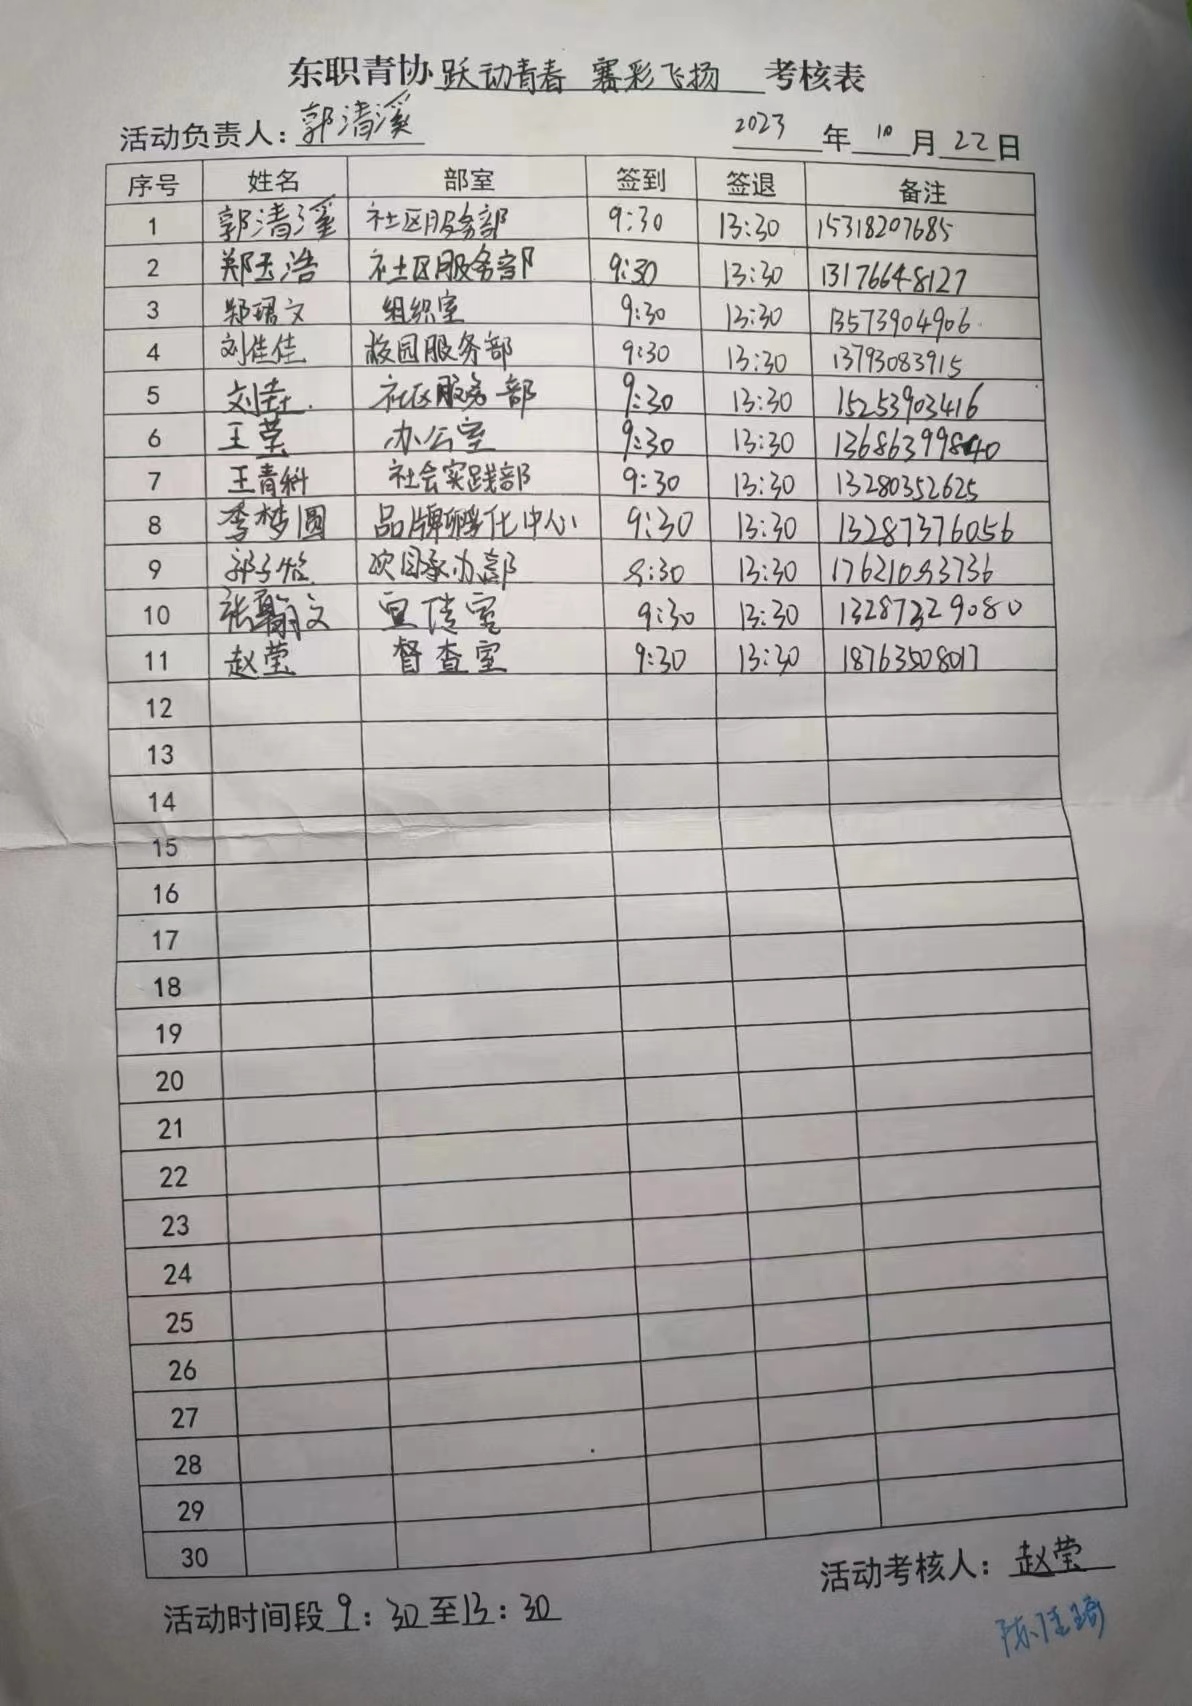 东职青协 跃动青春 赛彩飞扬 考核表
活动负责人：郭清溪 2023 年 10 月 22 日
序号 姓名 部室 签到 签退 备注
1 郭清溪 社区服务部 9:30 13:30 15318207685
2 郑玉浩 社区服务部 9:30 13:30 13176648127
3 郑珺文 组织室 9:30 13:30 13573904906
4 刘佳佳 校园服务部 9:30 13:30 13793083915
5 刘 社区服务部 9:30 13:30 15253903416
6 王莹 办公室 9:30 13:30 13686399840
7 王青科 社会实践部 9:30 13:30 13280352625
8 李梦圆 品牌孵化中心 9:30 13:30 13287376056
9 13:30
10 张瀚文 宣传室 9:30 13:30 13287329080
11 赵莹 督查室 9:30 13:30 18763508017
12
13
14
15
16
17
18
19
20
21
22
23
24
25
26
27
28
29
30
活动考核人：赵莹
活动时间段 9：30 至 13：30